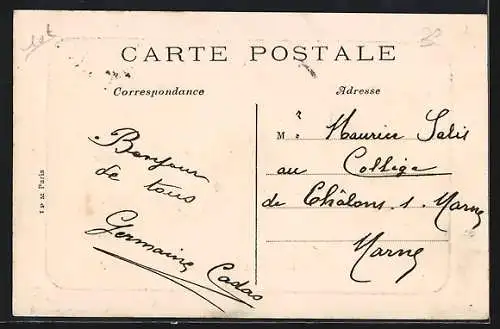 CARTE POSTALE
Correspondance
Bonjour
de tous
Germaine Cadas
Adresse
M r Maurice Salis
au Collège
de Châlons. s. Marne
Marne